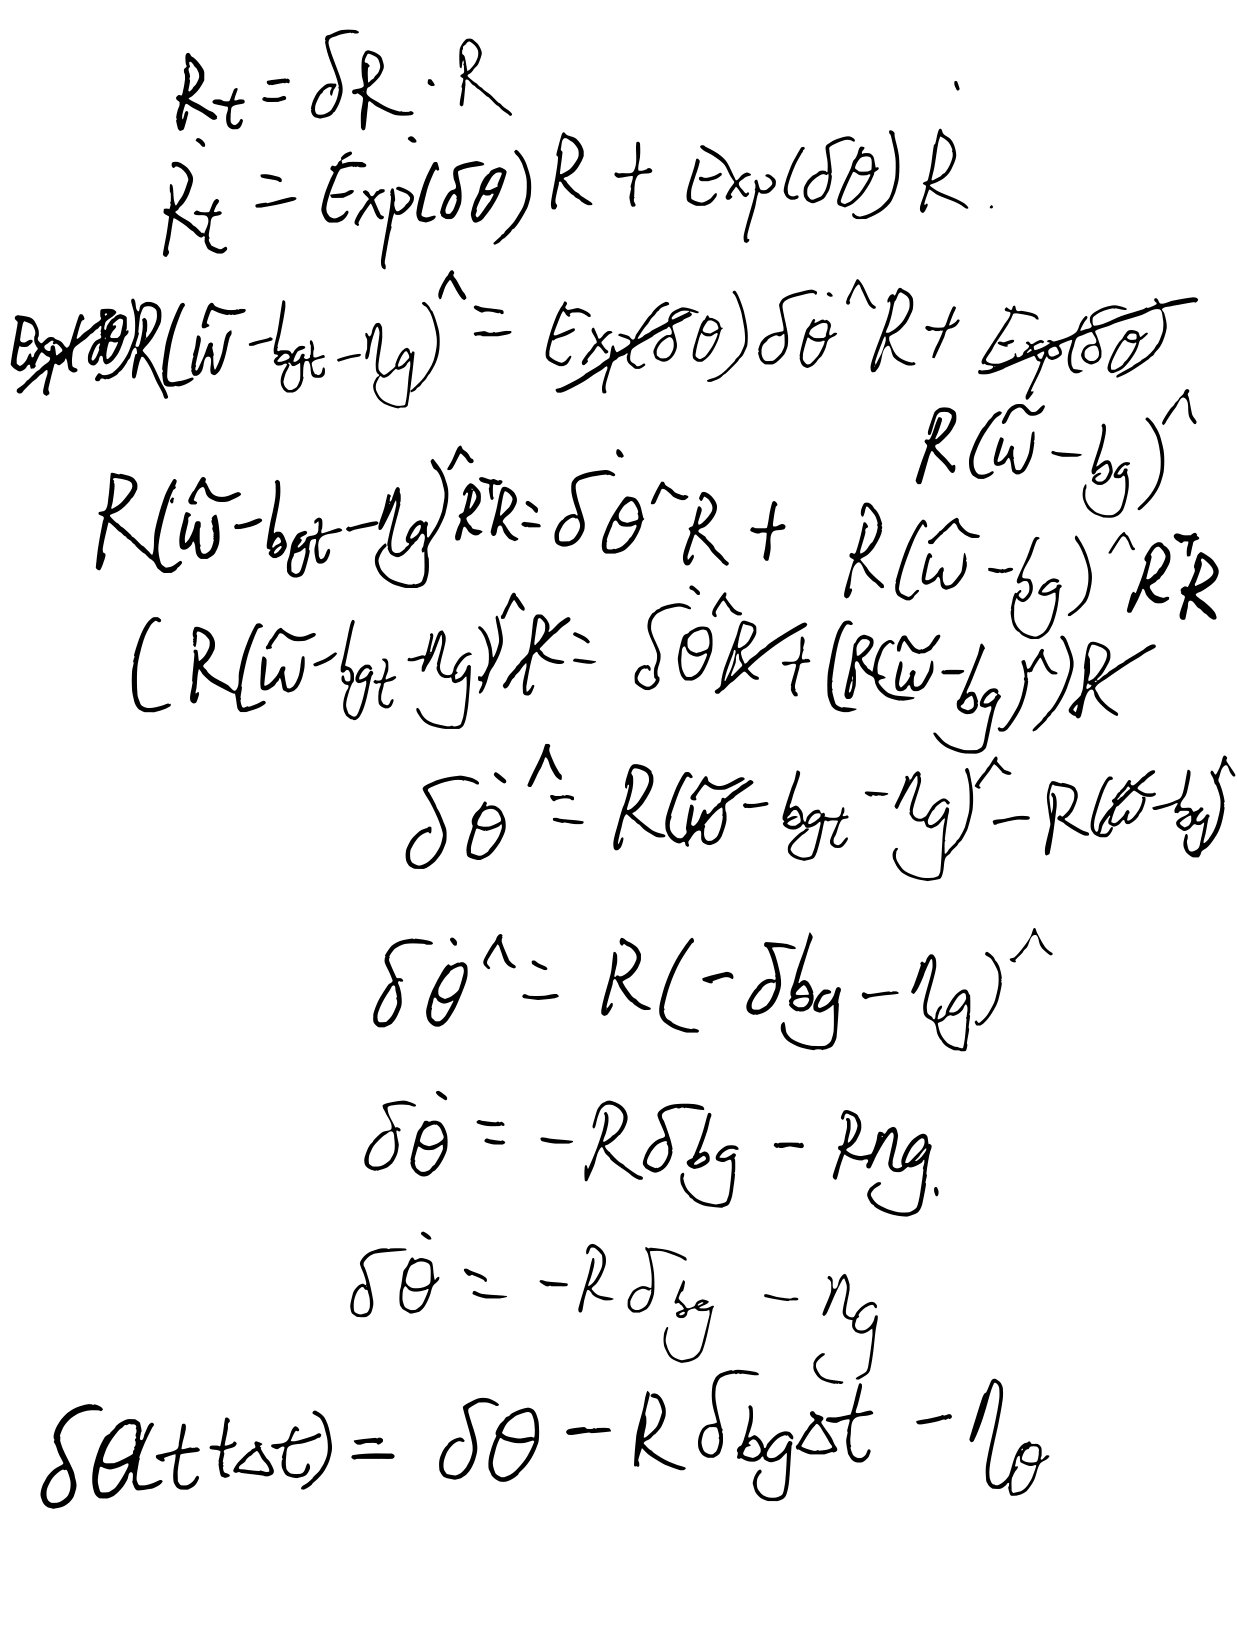 R_t = δR · R
Ṙ_t = Exp(δθ)˙ R + Exp(δθ) Ṙ.
Exp(δθ)R(ω̃ - b_gt - η_g)^ = Exp(δθ) δθ̇^ R + Exp(δθ)
R(ω̃ - b_g)^
R(ω̃ - b_gt - η_g)^ RᵀR = δθ̇^ R + R(ω̃ - b_g)^ RᵀR
(R(ω̃ - b_gt - η_g))^ R = δθ̇^ R + (R(ω̃ - b_g)^)R
δθ̇^ = R(ω̃ - b_gt - η_g)^ - R(ω̃ - b_g)^
δθ̇^ = R(-δb_g - η_g)^
δθ̇ = -Rδb_g - Rη_g.
δθ̇ = -Rδb_g - η_g
δθ(t+Δt) = δθ - Rδb_gΔt - η_θ